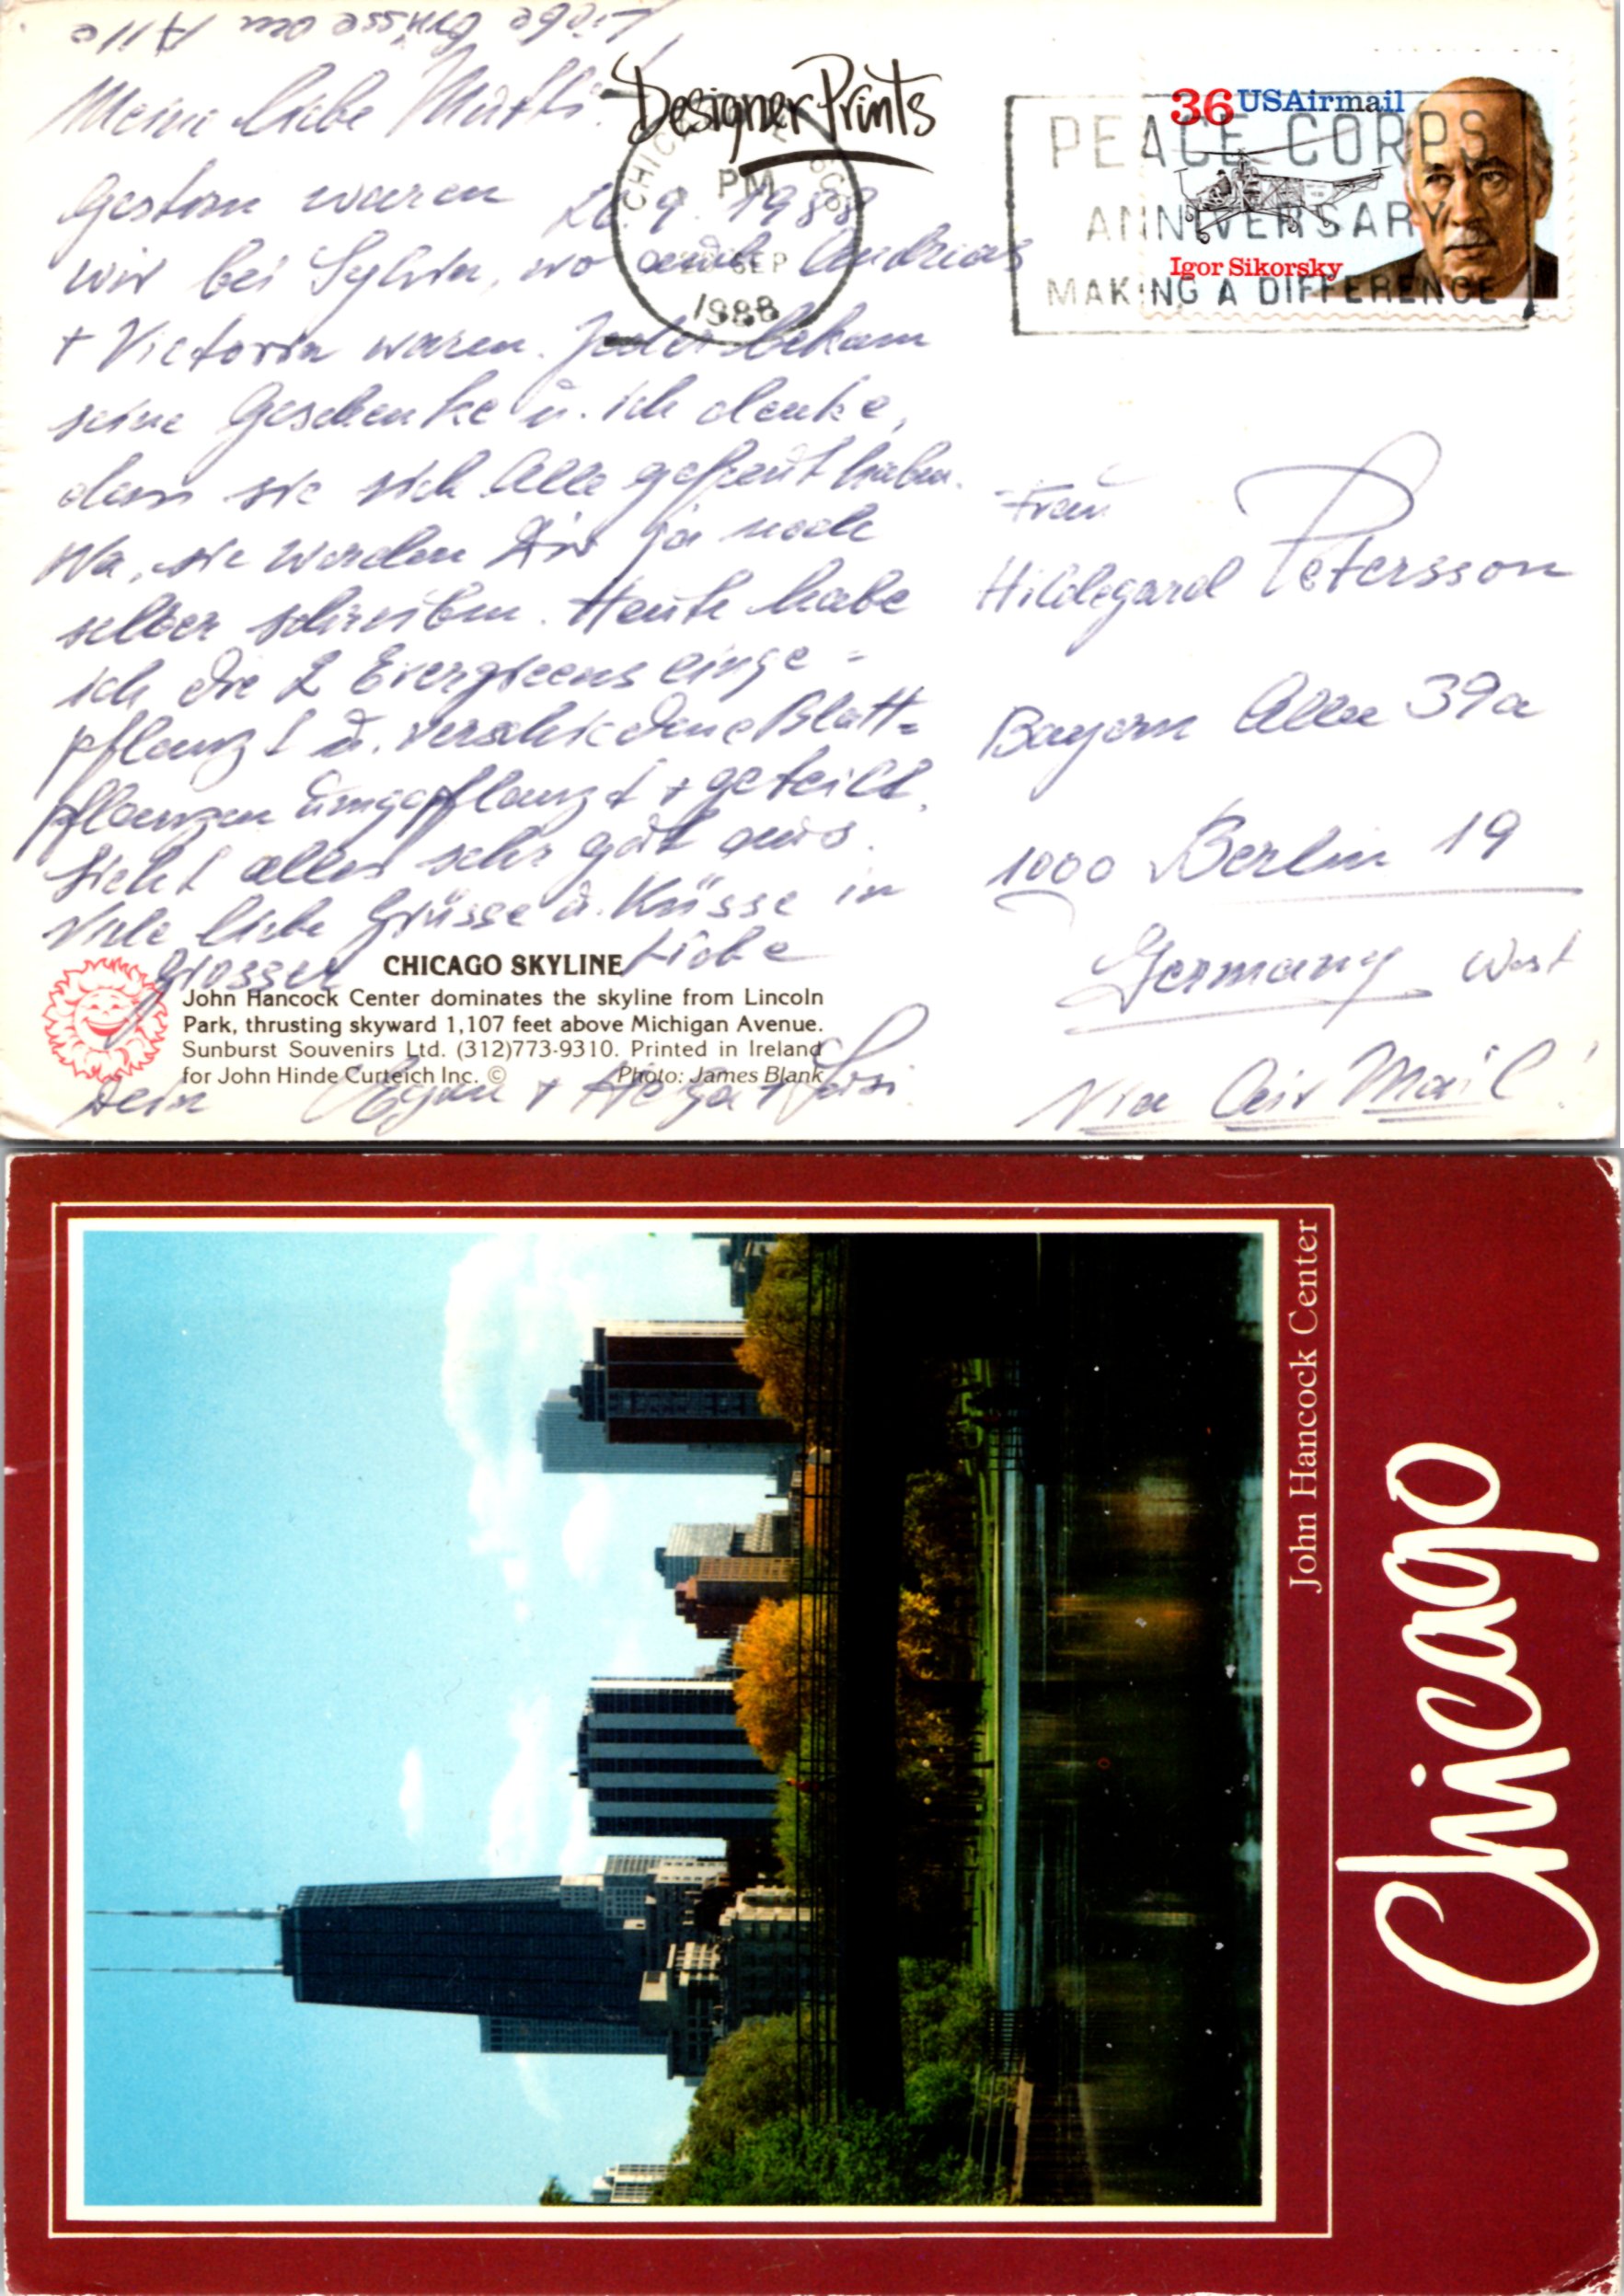 Liebe Grüsse an Alle
Meine liebe Mutti!
Designer Prints
Gestern waren 20.9.1988
wir bei Sylvia, wo auch Andreas
+ Victoria waren. Jeder bekam
seine Geschenke u. ich denke,
dass sie sich Alle gefreut haben.
Na, sie werden Dir ja noch
selber schreiben. Heute habe
ich die 2 Evergreens einge-
pflanzt u. verschiedene Blatt=
pflanzen umgepflanzt + geteilt.
Sieht alles sehr gut aus.
Viele liebe Grüsse u. Küsse in
grosser Liebe
Dein + Helga +
CHICAGO SKYLINE
John Hancock Center dominates the skyline from Lincoln
Park, thrusting skyward 1,107 feet above Michigan Avenue.
Sunburst Souvenirs Ltd. (312)773-9310. Printed in Ireland
for John Hinde Curteich Inc. © Photo: James Blank
CHICAGO
PM
SEP
1988
PEACE CORPS
ANNIVERSARY
MAKING A DIFFERENCE
36 USAirmail
Igor Sikorsky
Frau
Hildegard Petersson
Bayern Allee 39a
1000 Berlin 19
Germany West
Via Air Mail!
John Hancock Center
Chicago